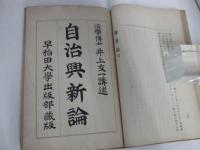 法學博士 井上友一講述
自治興新論
早稲田大學出版部藏版